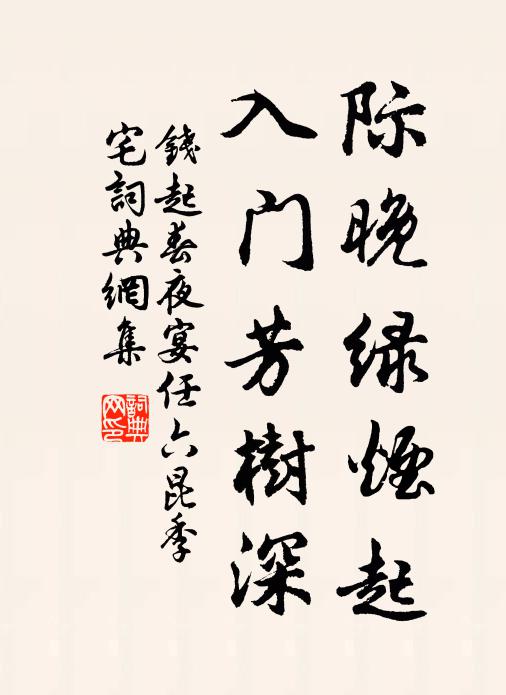 际晚绿煙起
入门芳樹深
錢起春夜宴任六昆季
宅詞典網集
詞典网印